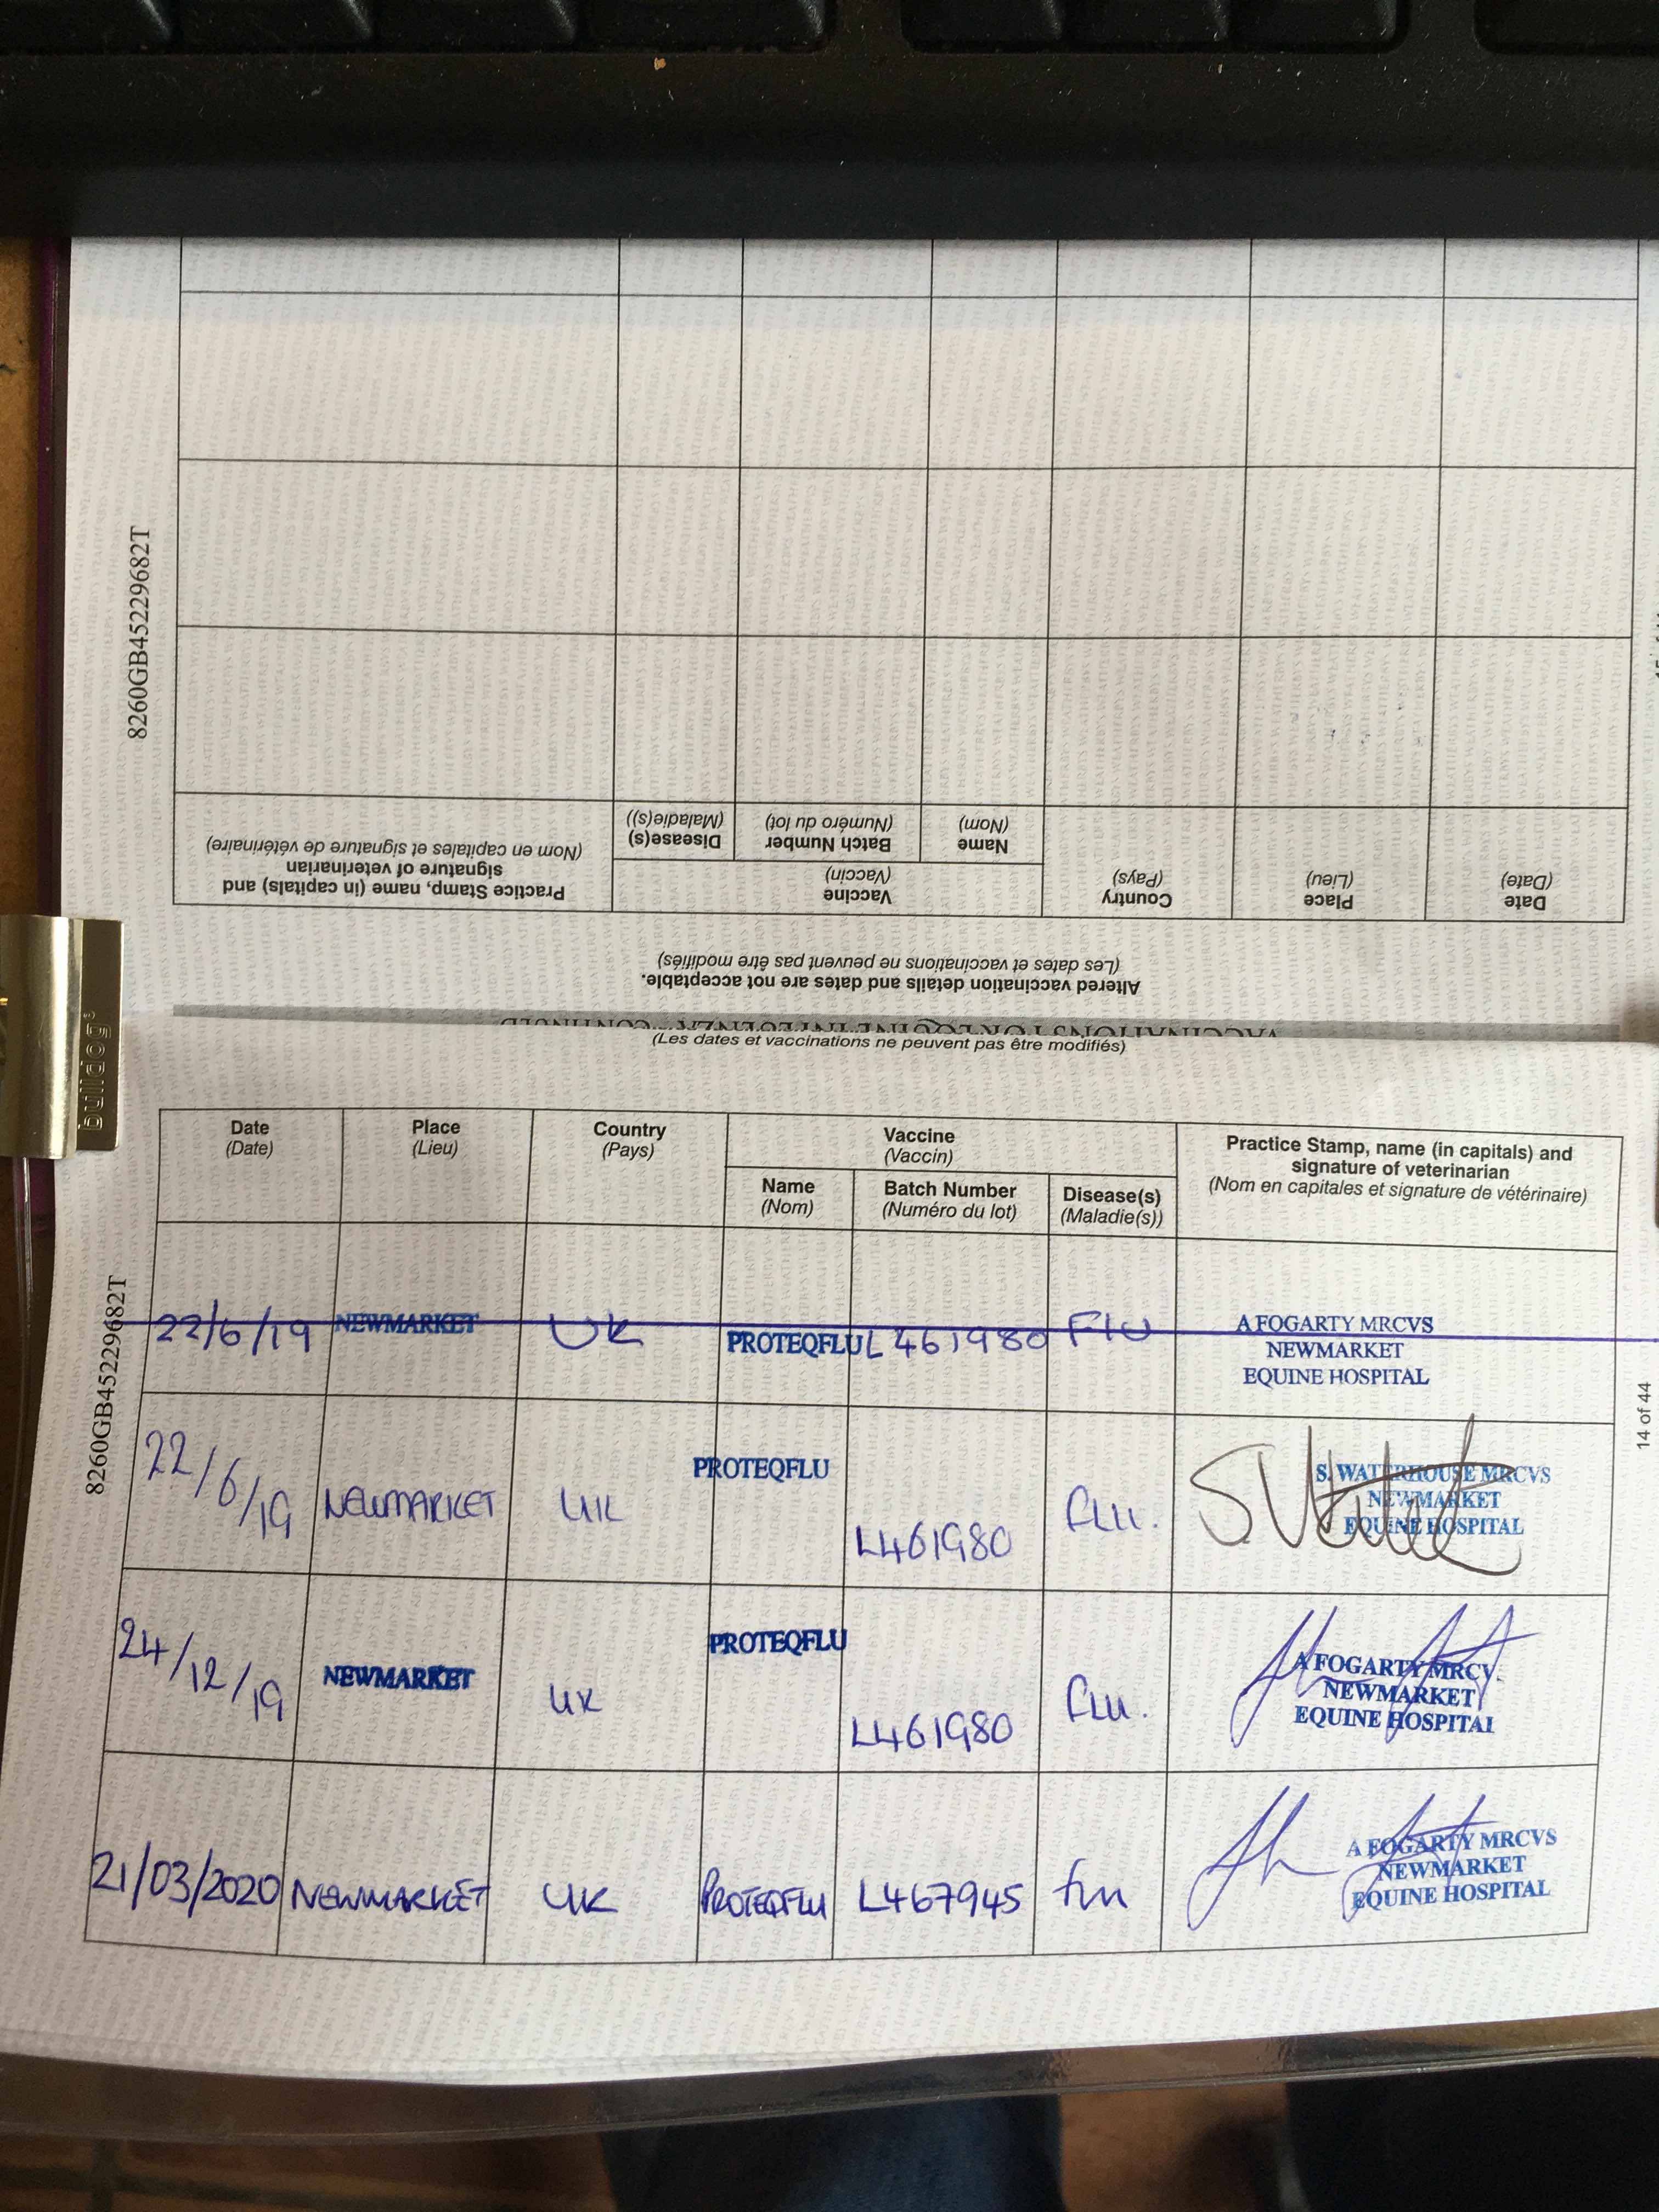 8260GB45229682T
Altered vaccination details and dates are not acceptable.
(Les dates et vaccinations ne peuvent pas être modifiés)
Date
(Date)
Place
(Lieu)
Country
(Pays)
Vaccine
(Vaccin)
Name
(Nom)
Batch Number
(Numéro du lot)
Disease(s)
(Maladie(s))
Practice Stamp, name (in capitals) and
signature of veterinarian
(Nom en capitales et signature de vétérinaire)
bulldog
(Les dates et vaccinations ne peuvent pas être modifiés)
Date
(Date)
Place
(Lieu)
Country
(Pays)
Vaccine
(Vaccin)
Name
(Nom)
Batch Number
(Numéro du lot)
Disease(s)
(Maladie(s))
Practice Stamp, name (in capitals) and
signature of veterinarian
(Nom en capitales et signature de vétérinaire)
8260GB45229682T
22/6/19 NEWMARKET UK PROTEQFLU L461980 Flu
A FOGARTY MRCVS
NEWMARKET
EQUINE HOSPITAL
22/6/19 NEWMARKET UK PROTEQFLU L461980 FLU.
S. WATERHOUSE MRCVS
NEWMARKET
EQUINE HOSPITAL
24/12/19 NEWMARKET UK PROTEQFLU L461980 FLU.
A FOGARTY MRCV
NEWMARKET
EQUINE HOSPITAL
21/03/2020 NEWMARKET UK PROTEQFLU L467945 flu
A FOGARTY MRCVS
NEWMARKET
EQUINE HOSPITAL
14 of 44